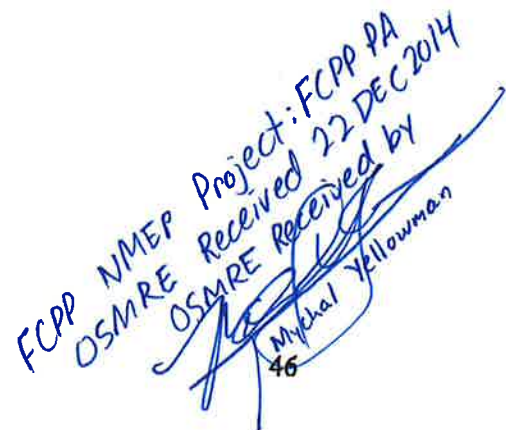 FCPP NMEP Project: FCPP PA
OSMRE Received 22 DEC 2014
OSMRE Received by
Mychal Yellowman
46